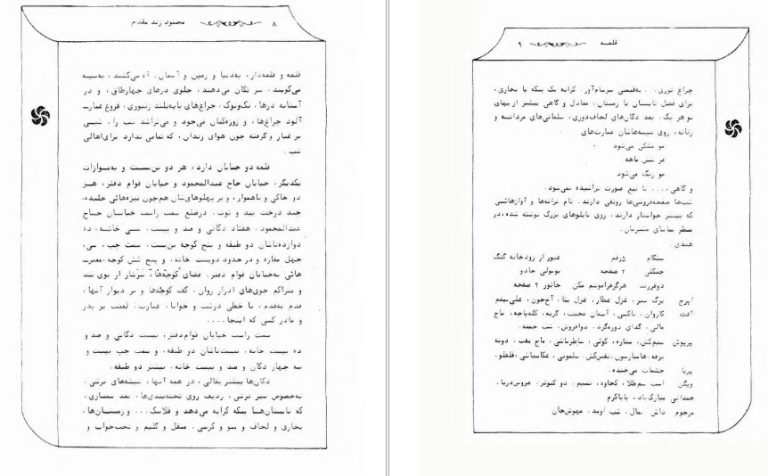 ۸ محمود زند مقدم
قلعه و قلعه‌دار، به‌دنیا و زمین و آسمان، آه می‌کشند، به‌سینه
می‌کوبند، سر تکان می‌دهند، جلوی درهای چهارطاق، و در
آستانه درها، تک‌وتوک، چراغ‌های پایه‌بلند زنبوری، فروغ غبار
آلود چراغ‌ها، و زوزه‌کنان می‌جود و می‌تراشد شب را، شبی
پر غبار و گرفته چون هوای زندان، که تمامی ندارد برای اهالی
شب.
قلعه دو خیابان دارد، هر دو بن‌بست و به‌موازات
یکدیگر، خیابان حاج عبدالمحمود و خیابان قوام دفتر، هر
دو خاکی و ناهموار، و بر پهلوهای‌شان همچون نیزه‌هائی خلیده،
چند درخت بید و توت. درضلع سمت راست خیابان حاج
عبدالمحمود، هفتاد دکانی و صد و بیست، سی خانه، ده
دوازده‌تاشان دو طبقه و پنج کوچه بن‌بست، سمت چپ، سی،
چهل مغازه و در حدود دویست خانه، و پنج شش کوچه
هائی به‌خیابان قوام دفتر. فضای کوچه‌ها، سرشار از بوی تند
و متراکم جوی‌های ادرار روان، کف کوچه‌ها و بر دیوار آنها،
قدم به‌قدم، با خطی درشت و خوانا، عبارت: لعنت بر پدر
و مادر کسی که اینجا....
سمت راست خیابان قوام‌دفتر، بیست دکانی و صد و
ده بیست خانه، بیست‌تاشان دو طبقه، و سمت چپ بیست و
سه چهار دکان و صد و بیست خانه، بیشتر دو طبقه.
دکان‌ها بیشتر بقالی، در همه آنها، شیشه‌های ترشی،
به‌خصوص سیر ترشی، ردیف روی تخته‌بندی‌ها، بعد سمساری،
که تابستان‌ها پنکه کرایه می‌دهد و فلاسک... و زمستان‌ها،
بخاری و لحاف و پتو و کرسی. منقل و گلیم و تخت‌خواب و
قلعه ۹
چراغ توری.. به‌قیمتی سرسام‌آور. کرایه یک پنکه یا بخاری،
برای فصل تابستان یا زمستان، معادل و گاهی بیشتر از بهای
نو هر یک. بعد دکان‌های لحاف‌دوزی، سلمانی‌های مردانه و
زنانه، روی شیشه‌هاشان عبارت‌های
مو مشکی می‌شود
فر شش ماهه
مو رنگ می‌شود
و گاهی.... با تیغ صورت تراشیده نمی‌شود.
شب‌ها صفحه‌فروشی‌ها رونقی دارند. نام ترانه‌ها و آوازهائی
که بیشتر خواستار دارند، روی تابلوهای بزرگ نوشته شده، در
منظر تماشای مشتریان.
هندی.
سنگام ۵ رقم عبور از رودخانه گنگ
جنگلی ۲ صفحه بوبولی جادو
دوفرزند هرگز فراموشم مکن جانور ۲ صفحه
ایرج برگ سبز، غزل عطار، غزل بینا، آخ‌جون، علی‌بهشم
آفت کاروان، تاکسی، آسمان محبت، گربه، کله‌پاچه، باج
مالی، گدای دوره‌گرد، دوافروش، شب جمعه.
پریوش سیم‌کش، ستاره، کولی، شاطرباشی، باغ بهشت، دونه
پریا چشمات می‌خنده.
ویگن اسب سم‌طلا، کجاوه، نسیم. دو کبوتر، عروس‌دریا،
همدانی مبارک‌باد، باباکرم
مرحوم داش مهوش‌خان